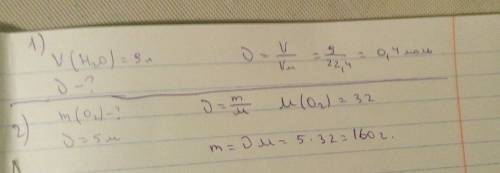 1)
V(H₂O) = 9 л   ν = V/Vм = 9/22,4 = 0,4 моль
ν - ?
2) m(O₂) - ?   ν = m/M   M(O₂) = 32
ν = 5 м   m = ν M = 5 · 32 = 160 г.